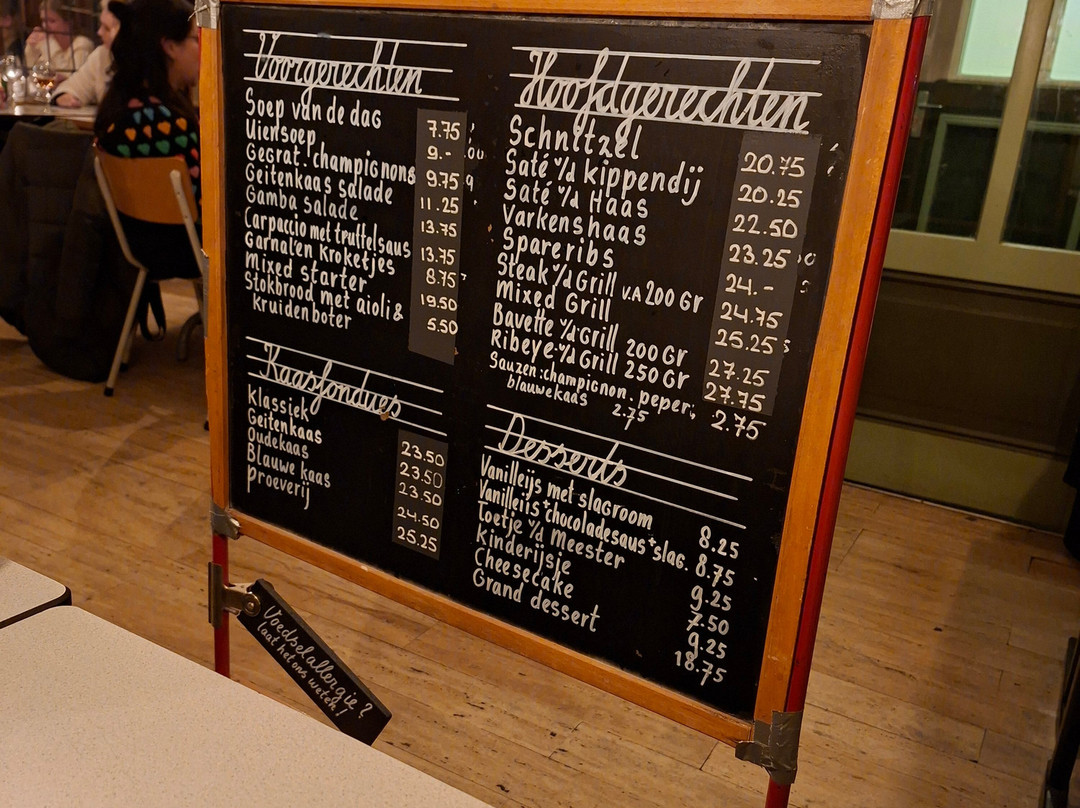 Voorgerechten
Soep van de dag 7.75
Uiensoep 9.-
Gegrat. champignons 9.75
Geitenkaas salade 11.25
Gamba salade 13.75
Carpaccio met truffelsaus 13.75
Garnalen kroketjes 8.75
Mixed starter 19.50
Stokbrood met aioli &
kruidenboter 5.50
Kaasfondues
Klassiek 23.50
Geitenkaas 23.50
Oudekaas 23.50
Blauwe kaas 24.50
Proeverij 25.25
Hoofdgerechten
Schnitzel 20.75
Saté v/d kippendij 20.25
Saté v/d Haas 22.50
Varkenshaas 23.25
Spareribs 24.-
Steak v/d Grill v.a 200 Gr 24.75
Mixed Grill 25.25
Bavette v/d Grill 200 Gr 27.25
Ribeye v/d Grill 250 Gr 27.75
Sauzen: champignon, peper, 2.75
blauwekaas 2.75
Desserts
Vanilleijs met slagroom 8.25
Vanilleijs + chocoladesaus + slag. 8.75
Toetje v/d Meester 9.25
Kinderijsje 7.50
Cheesecake 9.25
Grand dessert 18.75
Voedselallergie?
laat het ons weten!